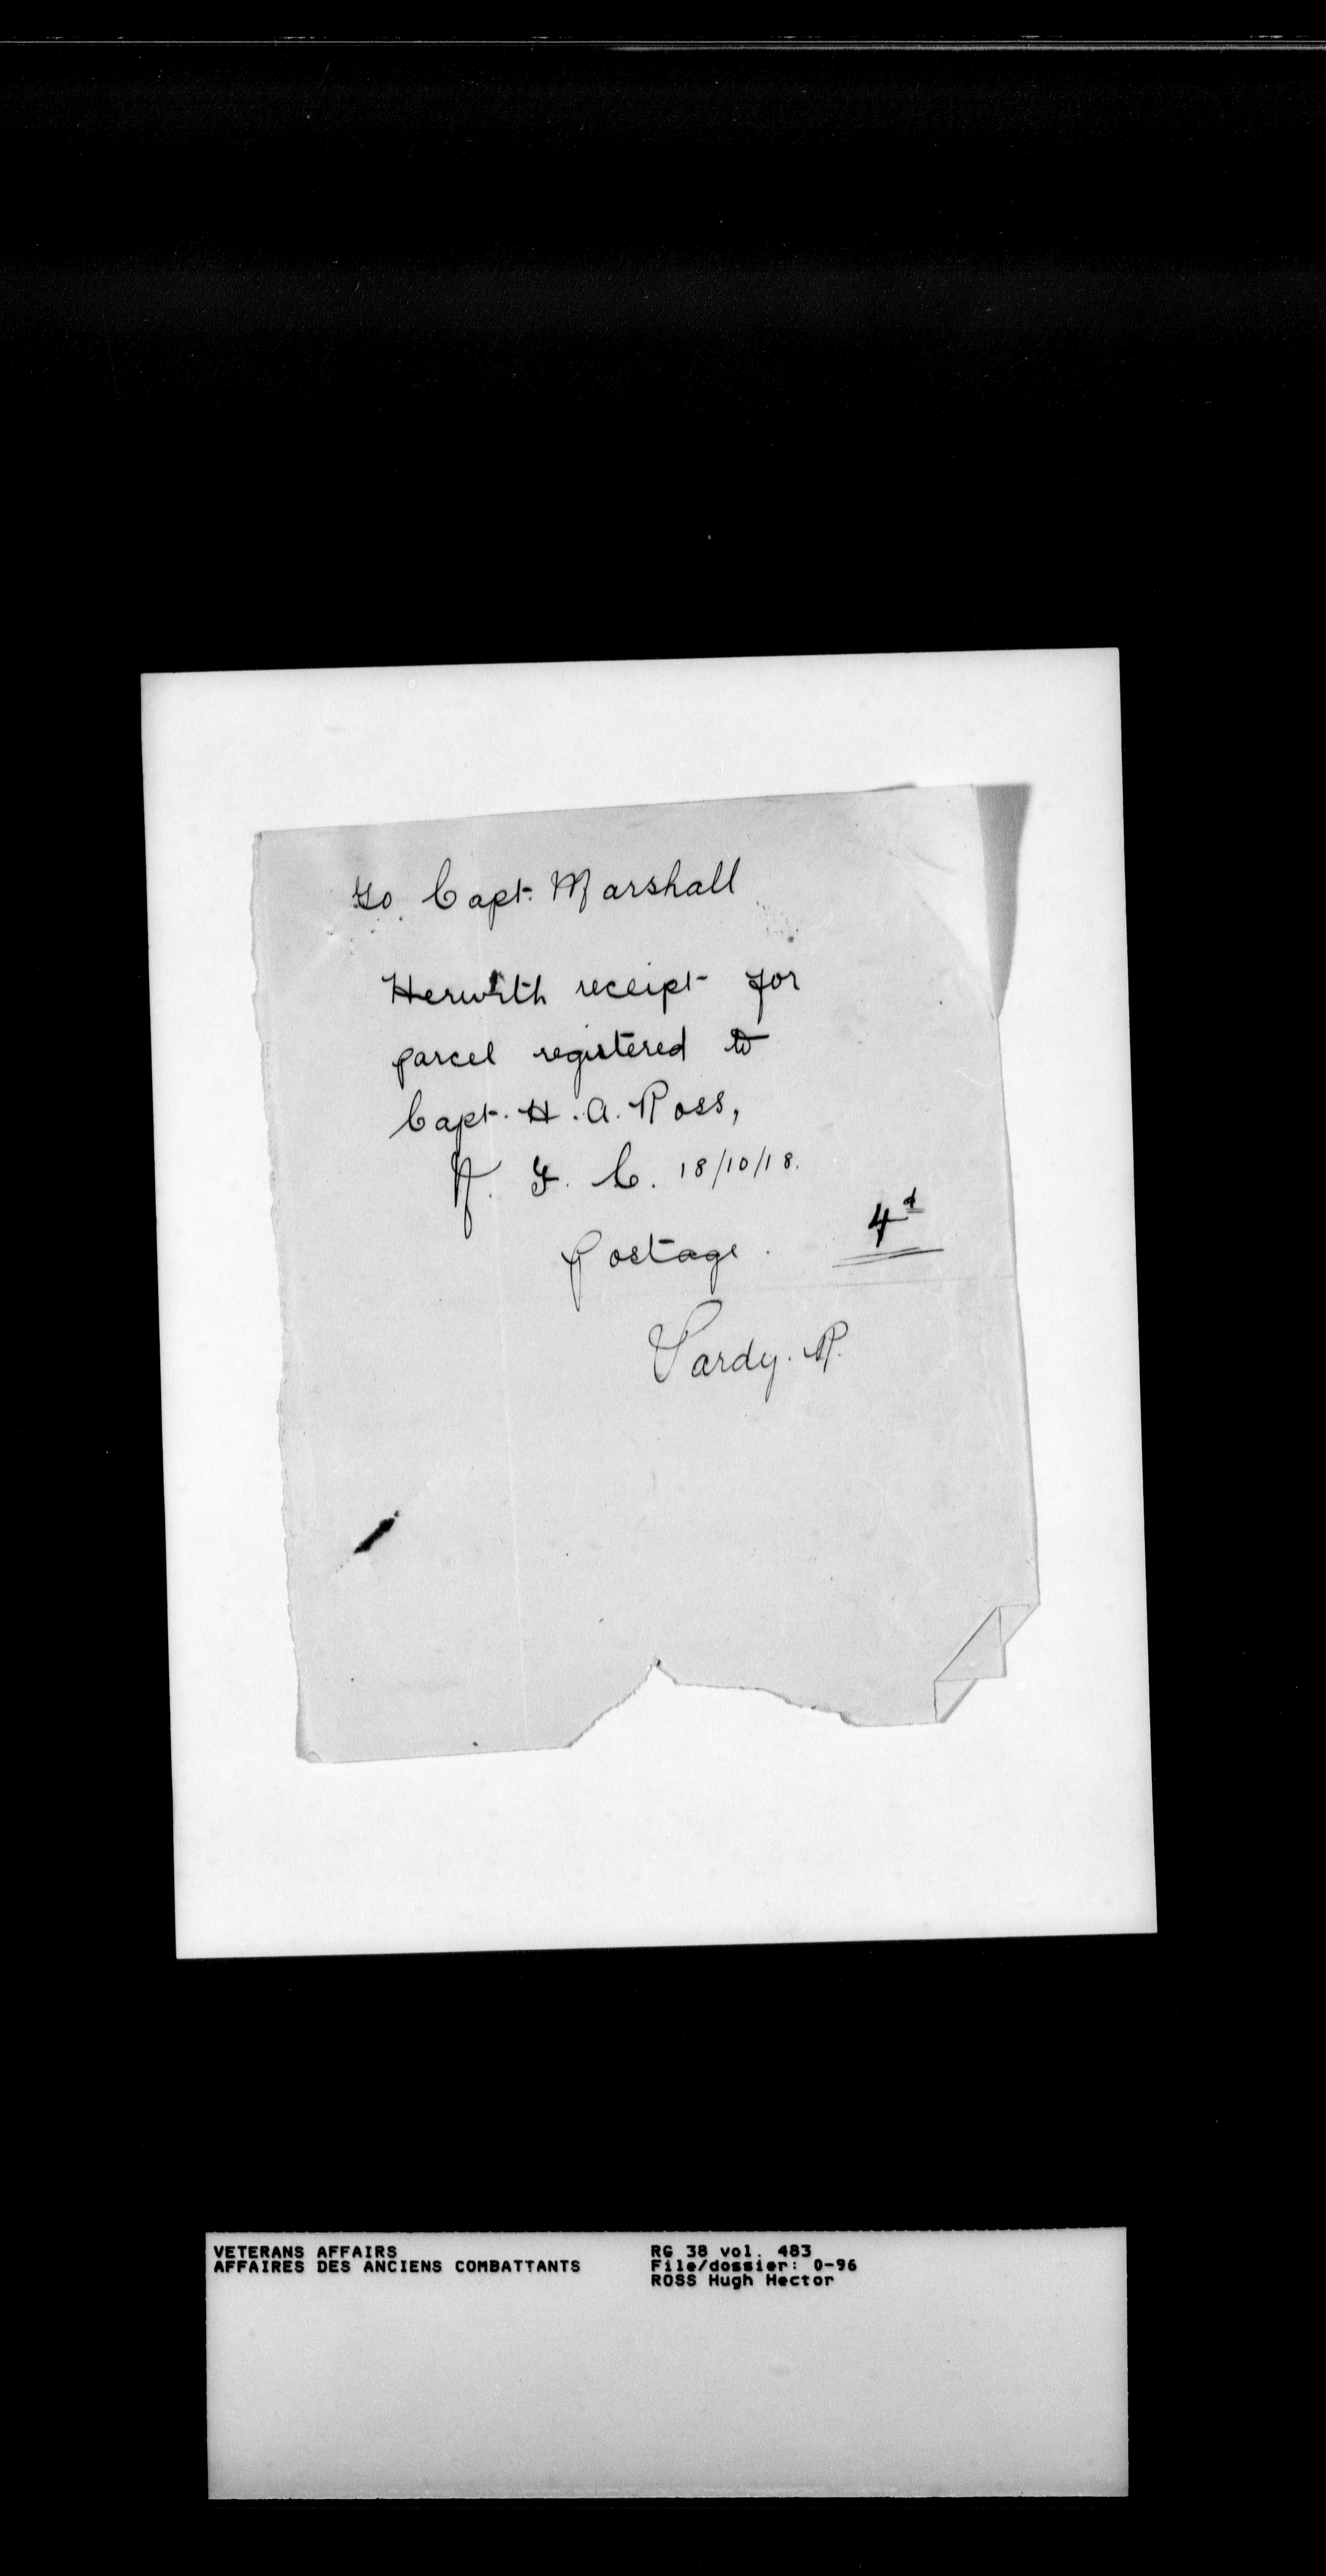 To Capt. Marshall
Herwith receipt for
parcel registered to
Capt. H. A. Ross,
N. F. C. 18/10/18.
Postage. 4d
Vardy. R.
VETERANS AFFAIRS
AFFAIRES DES ANCIENS COMBATTANTS
RG 38 vol. 483
File/dossier: 0-96
ROSS Hugh Hector